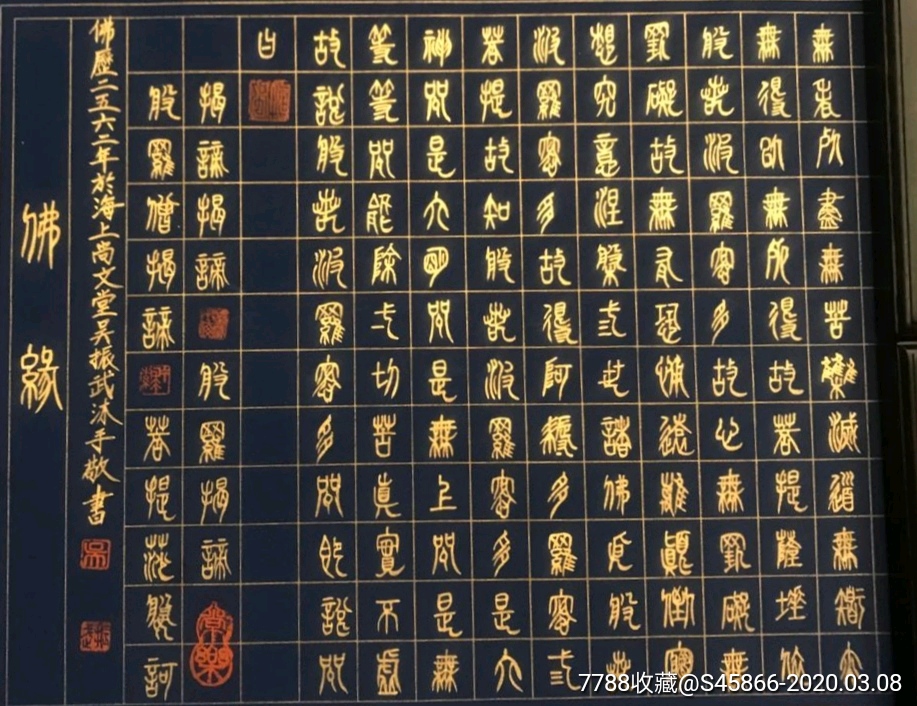 無老死盡無苦集滅道無智亦
無得以無所得故菩提薩埵依
般若波羅密多故心無罣礙無
罣礙故無有恐怖遠離顛倒夢
想究竟涅槃三世諸佛依般若
波羅密多故得阿耨多羅密三
菩提故知般若波羅密多是大
神咒是大明咒是無上咒是無
等等咒能除一切苦真實不虛
故說般若波羅密多咒即說咒
曰
揭諦揭諦般羅揭諦
般羅僧揭諦菩提莎婆訶
佛歷二五六二年於海上尚文堂吳振武沐手敬書
佛緣
7788收藏@S45866-2020.03.08